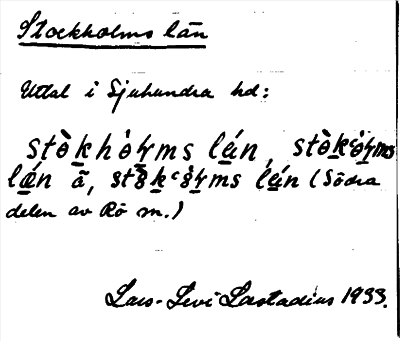 Stockholms län
Uttal i Sjuhundra hd:
stò̱khò̱ɽms lǽn, stò̱ḵʿò̱ɽms
lǽn ã, stò̱ḵʿò̱ɽms lǽn (Södra
delen av Rö sn.)
Lars-Levi Læstadius 1933.